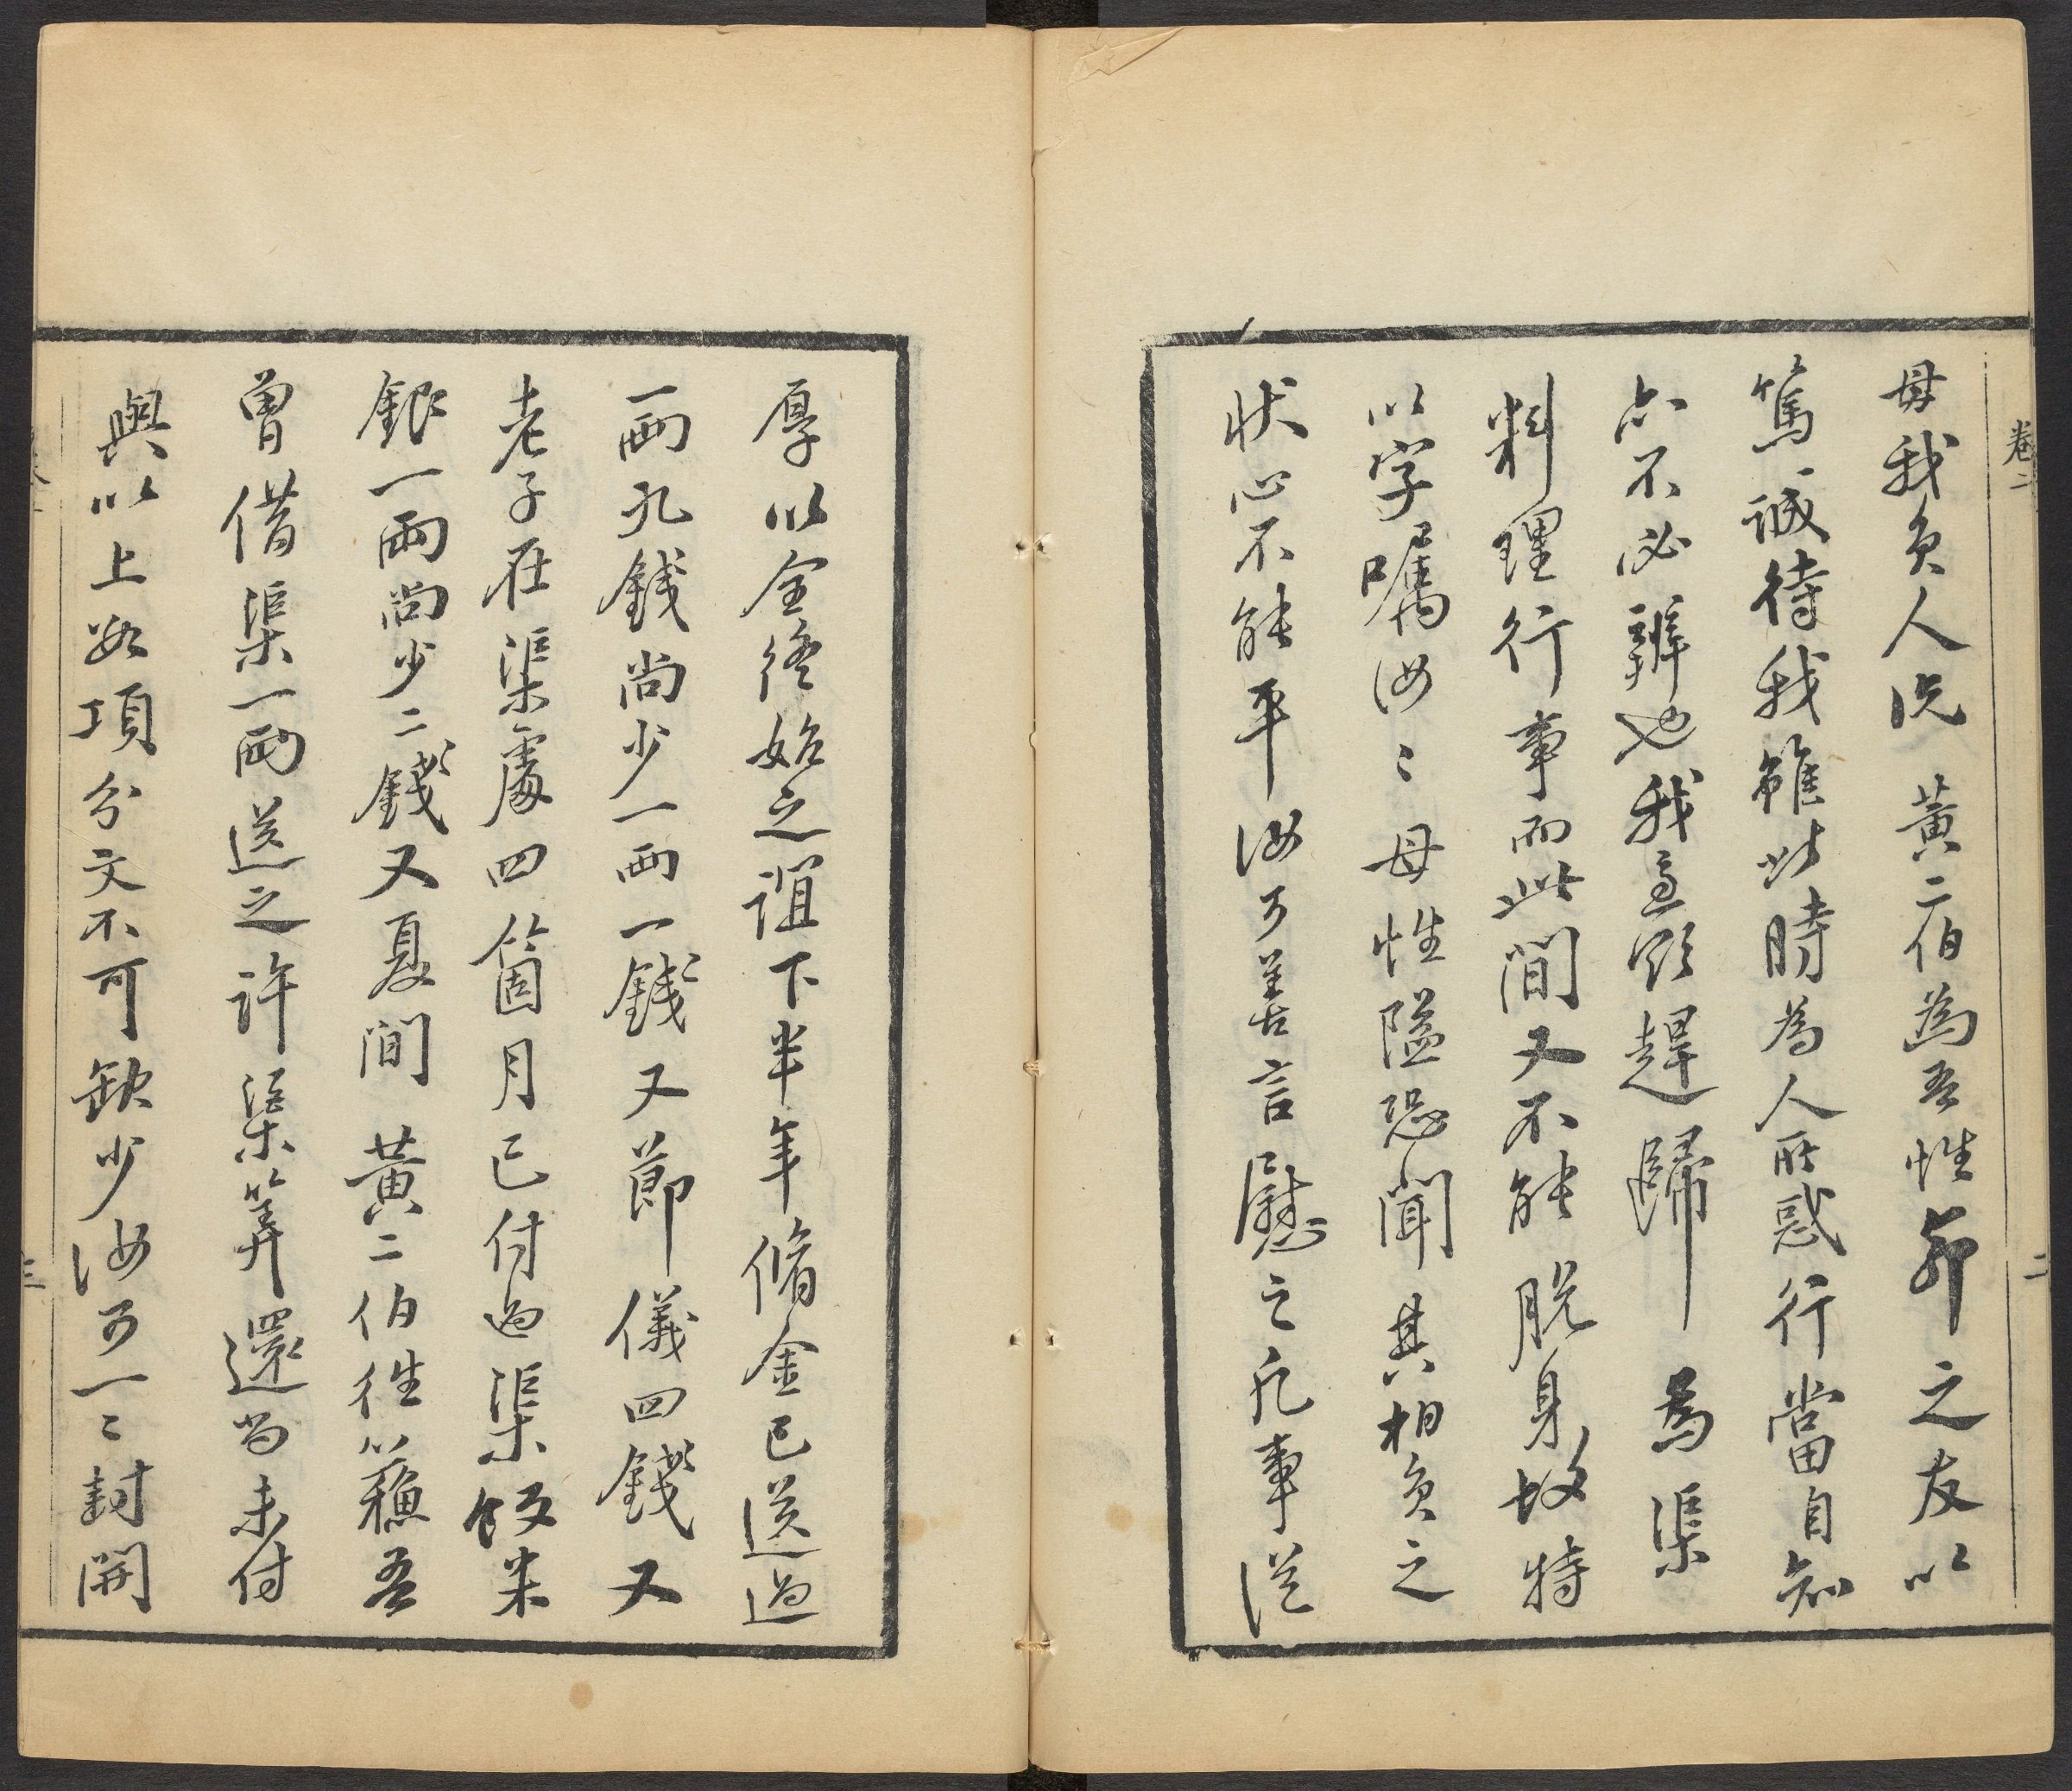 卷二
二
毋我負人况黃二伯為吾性命之友以
篤誠待我雖此時為人所惑行當自知
亦不必辨也我急欲趕歸為渠
料理行事而此間又不能脫身故特
以字囑汝〻母性隘恐聞其相負之
狀心不能平汝可善言慰之凡事從
厚以全終始之誼下半年脩金已送過
一兩九錢尚少一兩一錢又節儀四錢又
老子在渠處四箇月已付過渠飯米
銀一兩尚少二錢又夏間黃二伯往蘓吾
曾借渠一兩送之許渠算還尚未付
與以上數項分文不可缺少汝可一〻封開
三